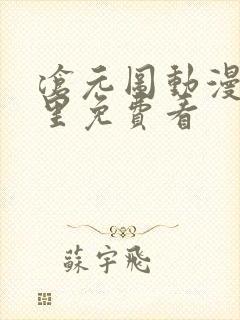 滄元圖動漫
里免費看
蘇宇飛